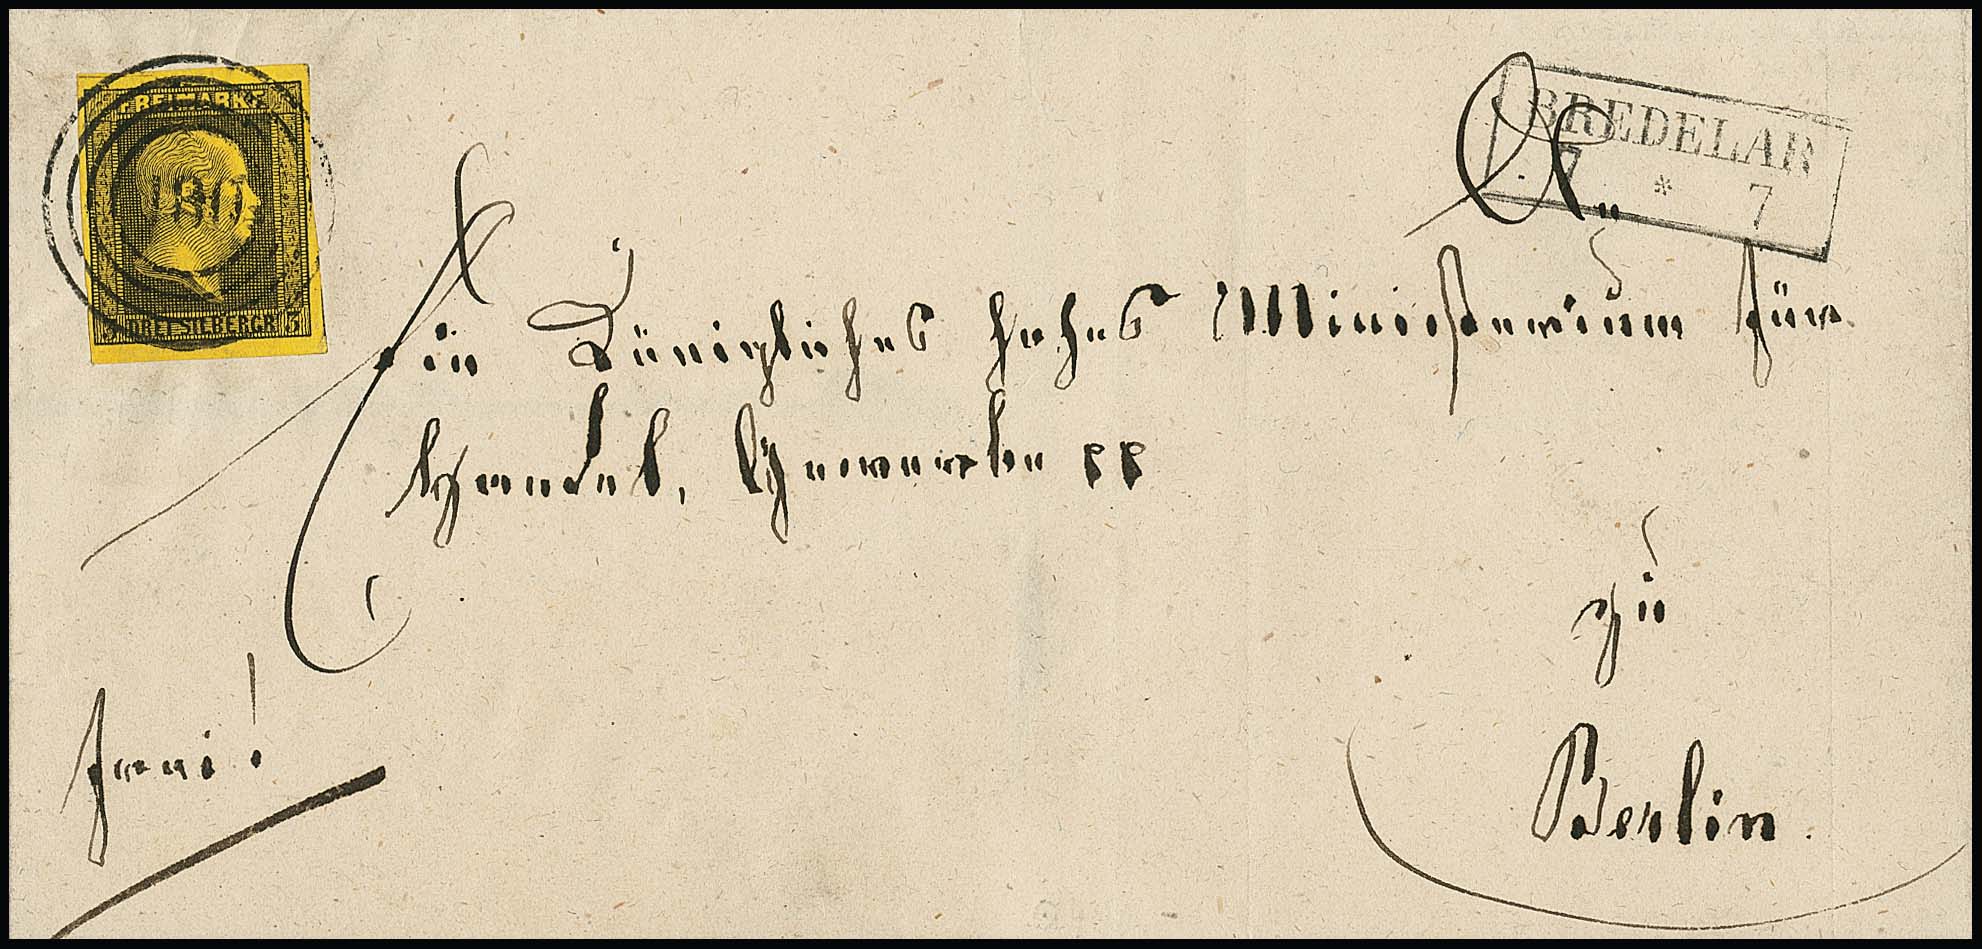 FREIMARKE
180
DREI SILBERGR. 3
BREDELAR
7 * 7
An
Ein Königliches hohes Ministerium für
Handel, Gewerbe pp
zu
Berlin.
franco!